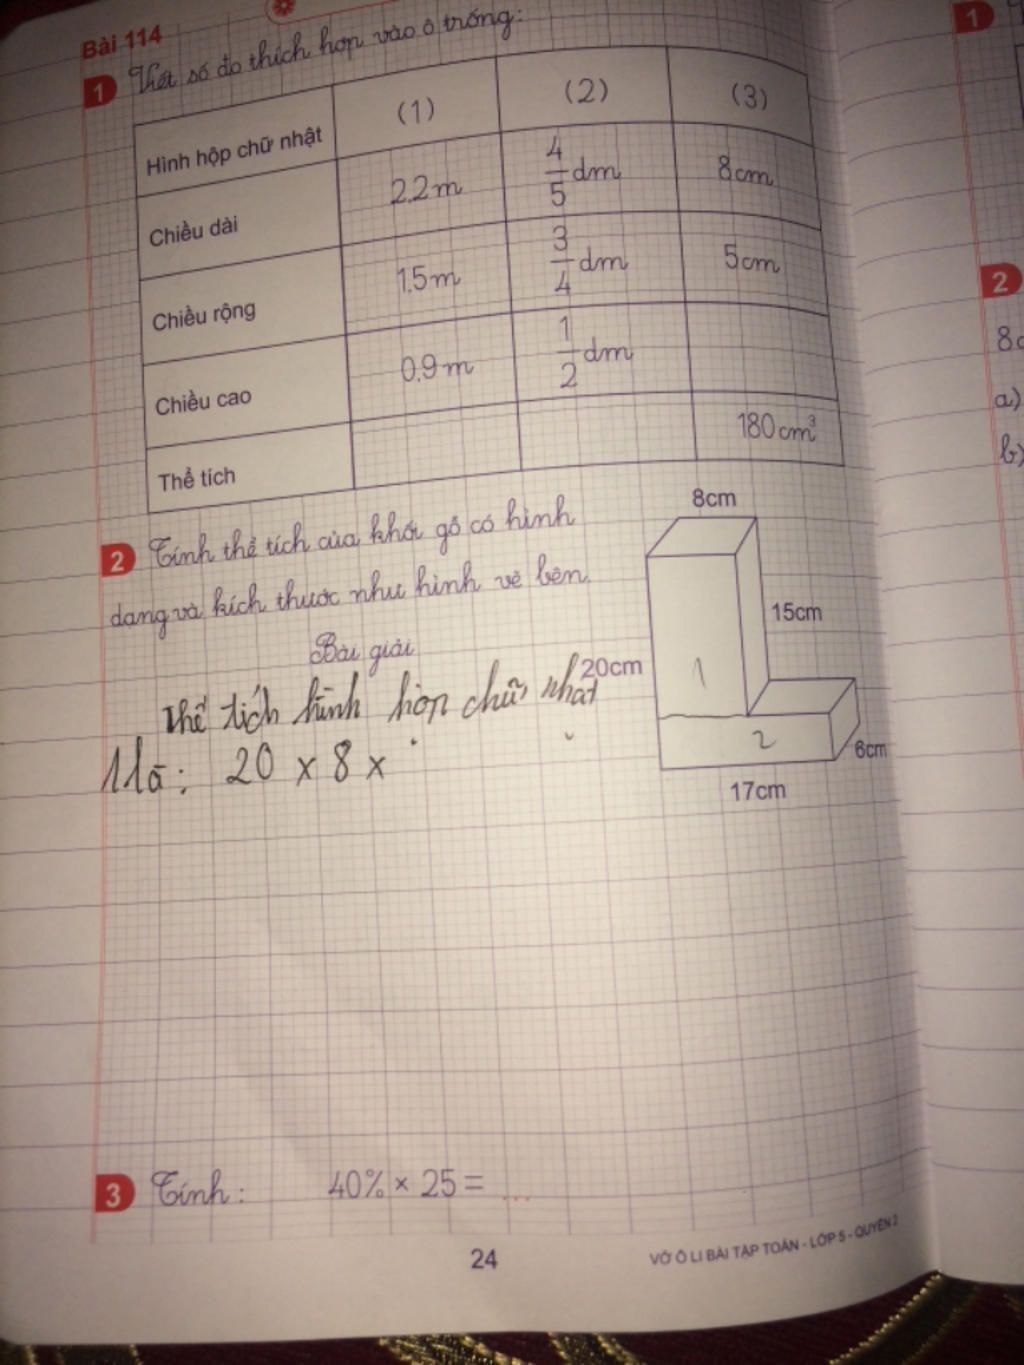 Bài 114
1 Viết số đo thích hợp vào ô trống:
Hình hộp chữ nhật (1) (2) (3)
Chiều dài 2,2m 4/5 dm 8cm
Chiều rộng 1,5m 3/4 dm 5cm
Chiều cao 0,9m 1/2 dm
Thể tích 180cm³
2 Tính thể tích của khối gỗ có hình
dạng và kích thước như hình vẽ bên.
Bài giải
Thể tích hình hộp chữ nhật
1 là: 20 x 8 x
8cm
15cm
20cm
1
2
6cm
17cm
3 Tính: 40% × 25 = ...
24
VỞ Ô LI BÀI TẬP TOÁN - LỚP 5 - QUYỂN 2
1
2
8c
a)
b)